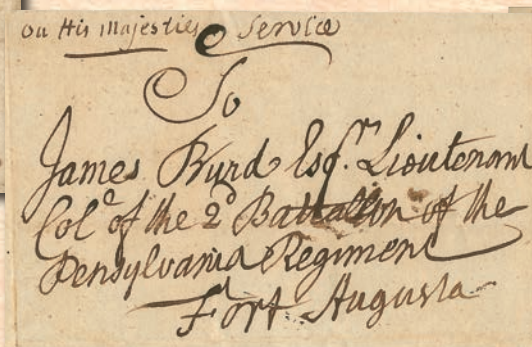 On His Majesties Service
To
James Burd Esqr. Lieutenant
Colo of the 2d Battallon of the
Pensylvania Regiment
Fort Augusta